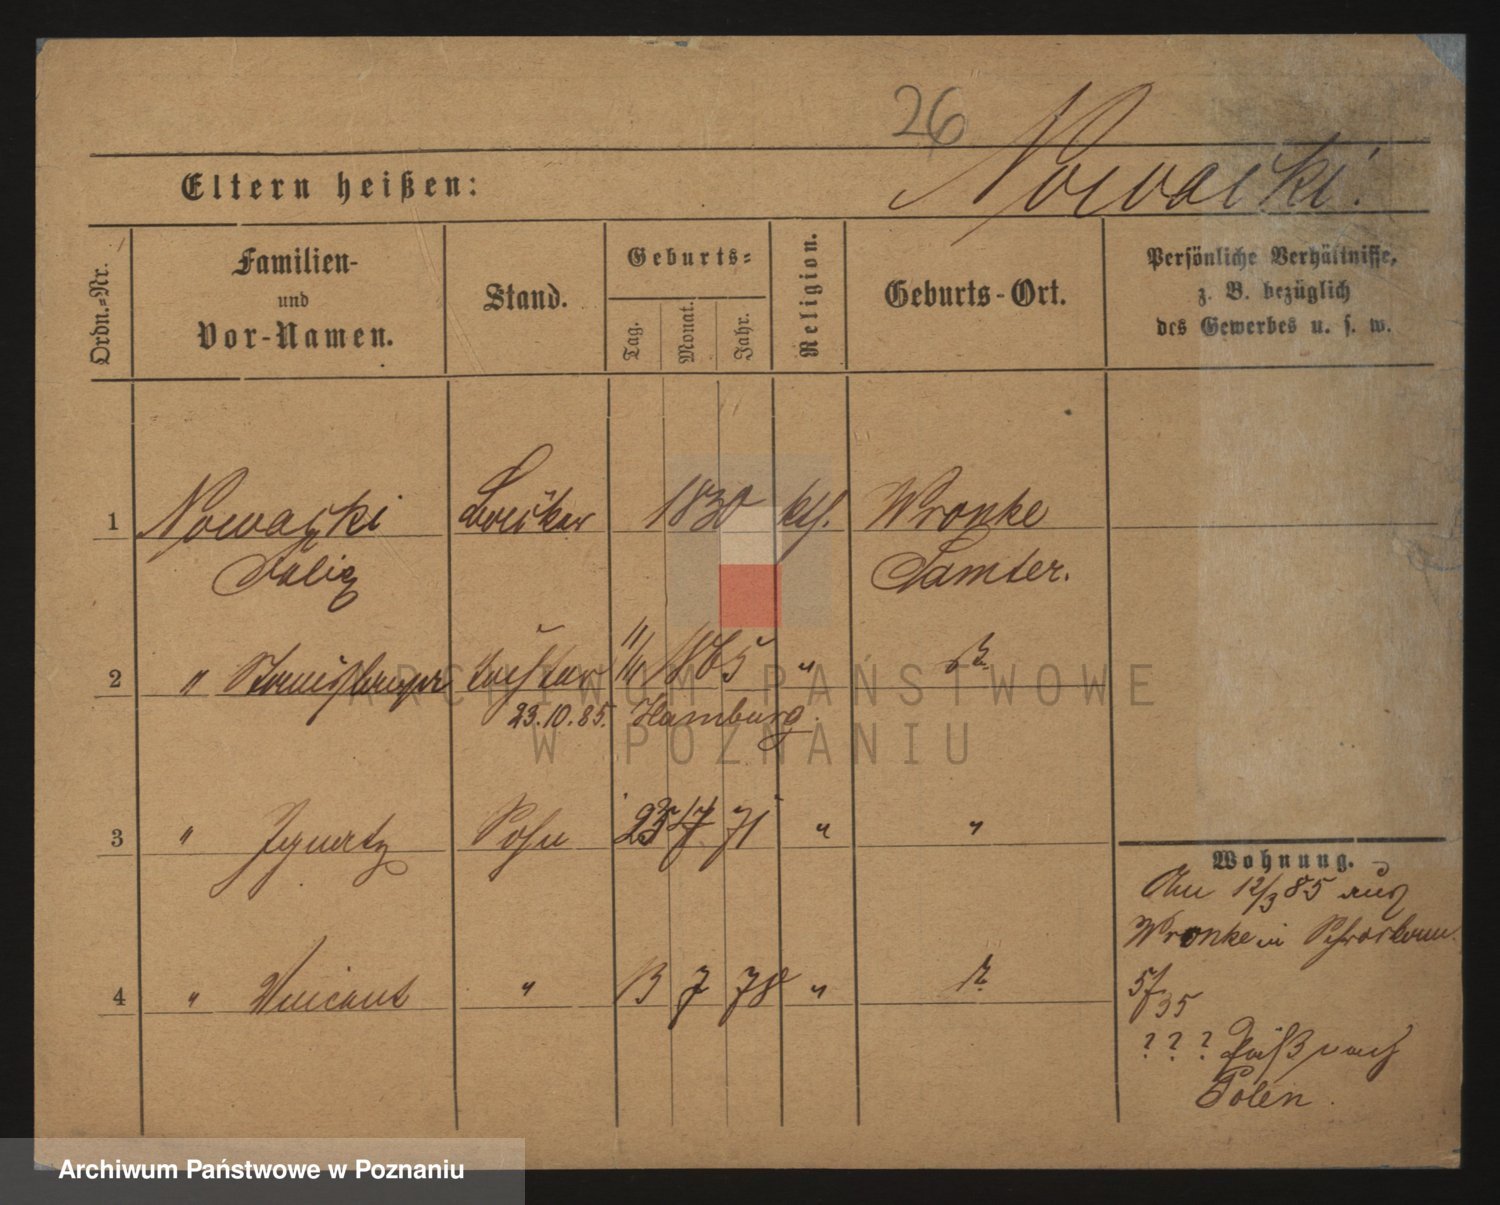 26
Nowacki.
Eltern heißen:
Ordn.-Nr.
Familien-
und
Vor-Namen.
Stand.
Geburts-
Tag.
Monat.
Jahr.
Religion.
Geburts-Ort.
Persönliche Verhältnisse,
z. B. bezüglich
des Gewerbes u. s. w.
1 Nowacki 1830 kth. Wronke
Felix Samter.
2 " Tochter 1865 "
23.10.85. Hamburg.
3 " Ignatz Sohn 23 7 71 " "
4 " Vincent " 13 7 78 "
Wohnung.
Am 12/3 85 aus
Wronke in
???  nach
Polen.
ARCHIWUM PAŃSTWOWE
W POZNANIU
Archiwum Państwowe w Poznaniu